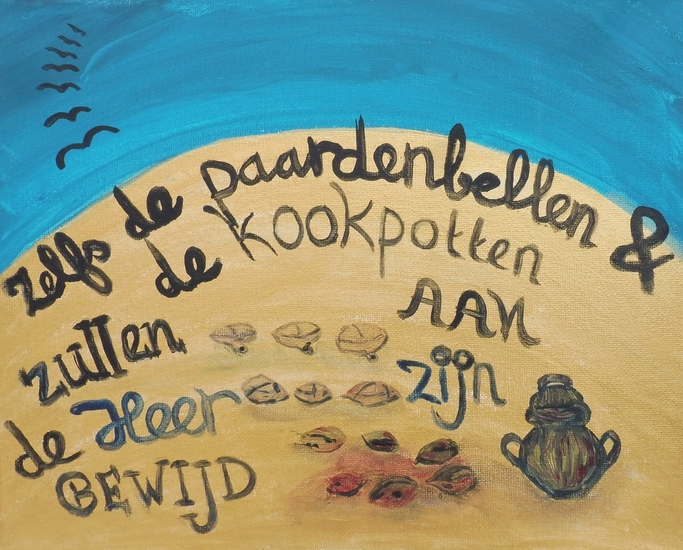 zelfs de paardenbellen &
de kookpotten
zullen AAN
de Heer zijn
GEWIJD